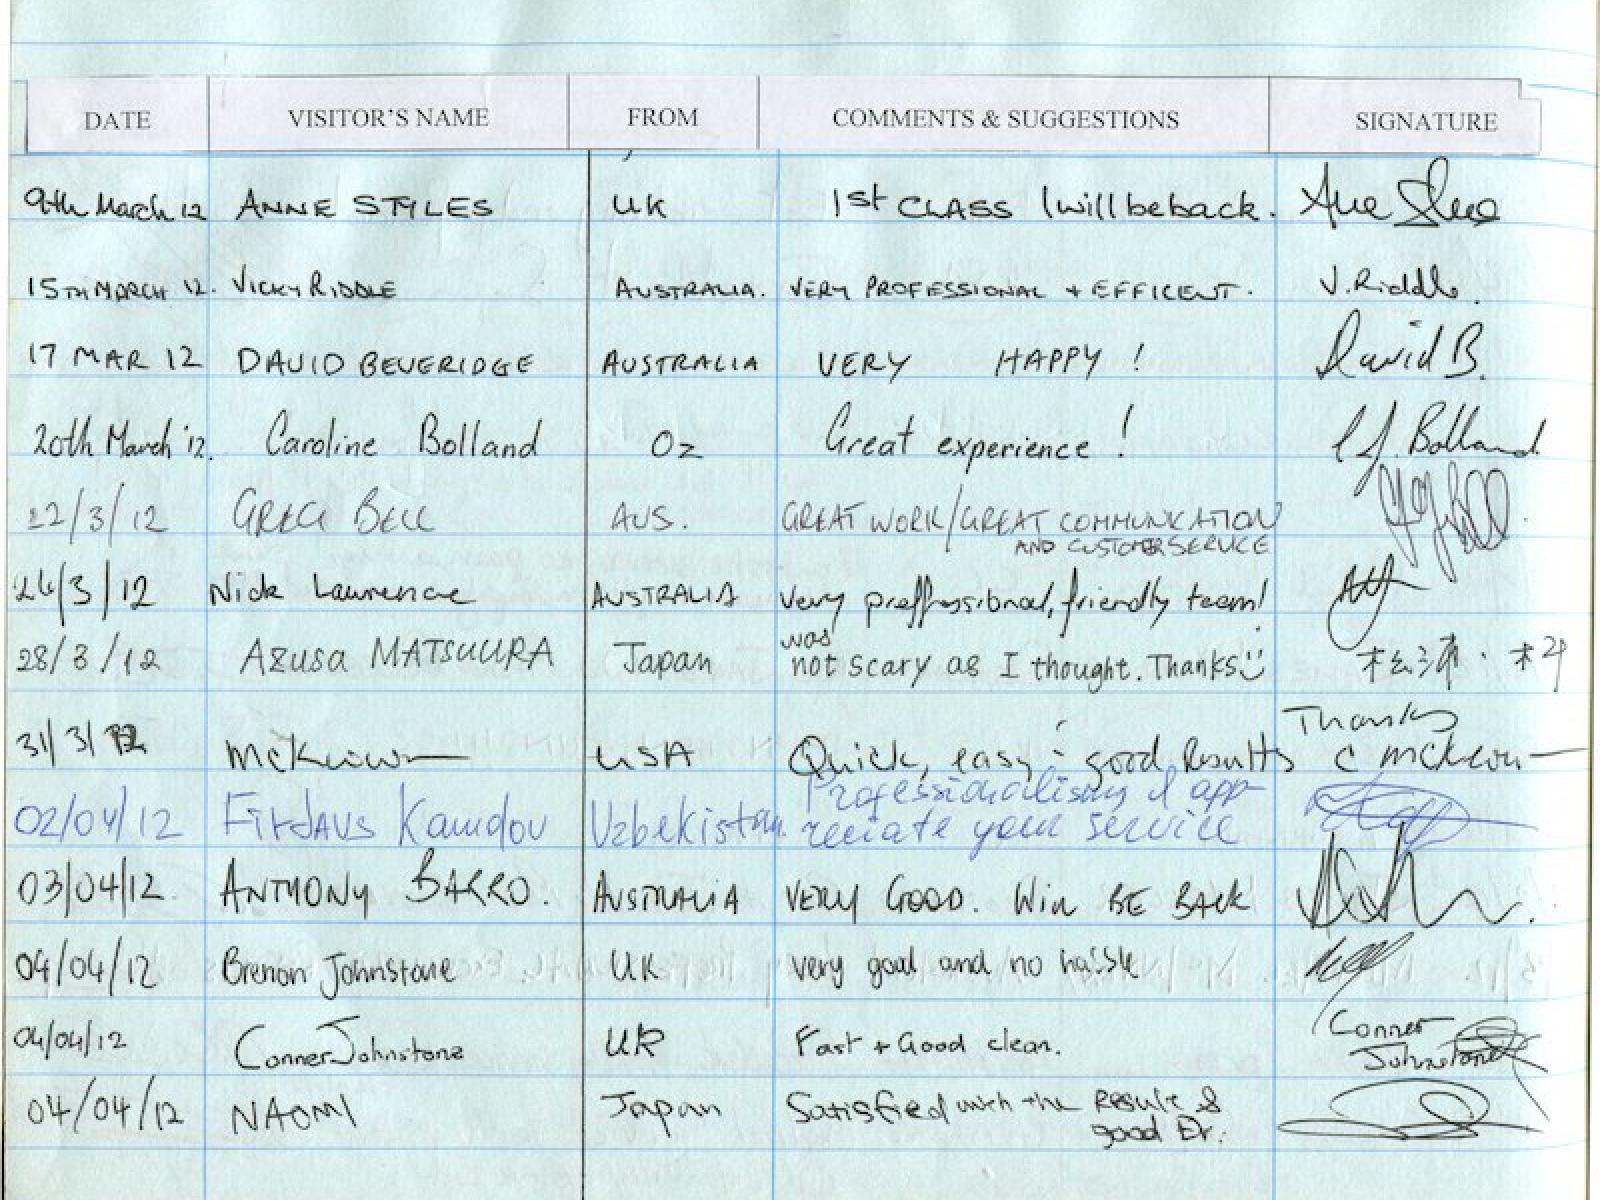 DATE VISITOR'S NAME FROM COMMENTS & SUGGESTIONS SIGNATURE
9th March 12 ANNE STYLES UK 1st CLASS I will be back.
15TH MARCH 12. VICKY RIDDLE AUSTRALIA. VERY PROFESSIONAL + EFFICENT. V. Riddle.
17 MAR 12 DAVID BEVERIDGE AUSTRALIA VERY HAPPY ! David B.
20th March '12. Caroline Bolland Oz Great experience ! C J. Bolland
22/3/12 GREG BELL AUS. GREAT WORK/GREAT COMMUNICATION
AND CUSTOMER SERVICE
26/3/12 Nick Lawrence AUSTRALIA very proffessional, friendly team!
28/3/12 Azusa MATSUURA Japan was
not scary as I thought. Thanks☺ 松浦・梓
31/3/12 McKeown USA Quick, easy - good Results Thanks
C McKeown
02/04/12 Firdavs Kamolov Uzbekistan Professionalism & app-
reciate your service
03/04/12. ANTHONY BARRO. AUSTRALIA VERY GOOD. Will BE BACK
04/04/12 Brenon Johnstone UK very good and no hassle
04/04/12 Conner Johnstone UK Fast + Good clean. Conner
Johnstone
04/04/12 NAOMI Japan Satisfied with the Result &
good Dr.